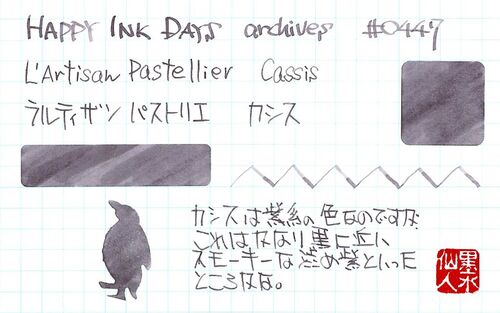 HAPPY INK DAYS archives #0447
L'Artisan Pastellier Cassis
ラルティザン パストリエ カシス
カシスは紫系の色なのですが
これはかなり黒に近い
スモーキーな渋め紫といった
ところかな。
墨水仙人